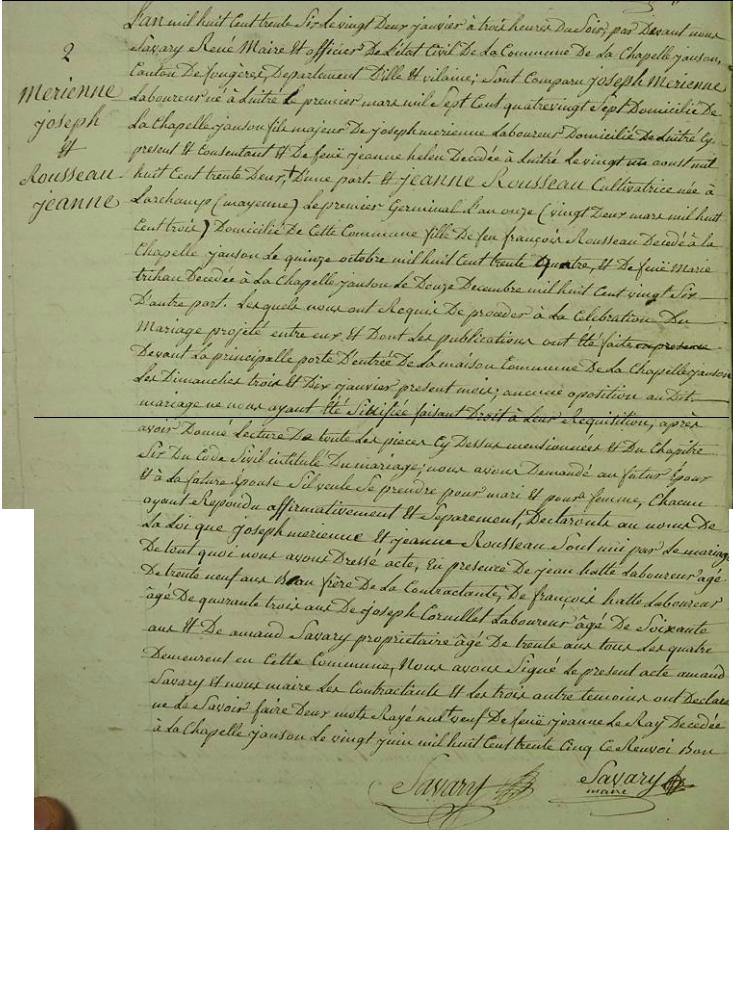 2
Merienne
joseph
&
Rousseau
jeanne
L'an mil huit Cent trente Six Le vingt Deux janvier à trois heures Du Soir, par Devant nous
Savary René Maire & officier De L'état Civil De La Commune De La Chapelle janson,
Canton De fougères, Departement D'ille & vilaine; Sont Comparu joseph Merienne
Laboureur né à Luitré Le premier mars mil Sept Cent quatrevingt Sept Domicilié De
La Chapelle janson fils majeur De joseph merienne Laboureur Domicilié De Luitré Cy
present & Consentant & De feüe jeanne helen Decedée à Luitré Le vingt aoust mil
huit Cent trente Deux, + D'une part. & jeanne Rousseau Cultivatrice née à
Larchamp (mayenne) Le premier Germinal L'an onze (vingt Deux mars mil huit
Cent trois) Domicilié De Cette Commune fille De feu françois Rousseau Decedé à la
Chapelle janson Le quinze octobre mil huit Cent trente quatre, & De feüe Marie
trihan Decedée à La Chapelle janson Le Douze Decembre mil huit Cent vingt Six
D'autre part. Les quels nous ont Requi De proceder à La Celebration Du
Mariage projeté entre eux & Dont Les publications ont été faite en presence
Devant La principalle porte D'entrée De La maison Commune De La Chapelle janson
Les Dimanches trois & Dix janvier present mois; aucune oposition au Dit
mariage ne nous ayant été Sinifiée faisant Droit à Leur Requisition, après
avoir Donné Lecture De toute Les pieces Cy Dessus mensionnées & Du Chapitre
Six Du Code Sivil intitulé Du mariage; nous avons Demandé au futur Epoux
& à la future épouse Sil veule Se prendre pour mari & pour femme, Chacun
ayant Repondu affirmativement & Separement, Declarons au noms De
La Loi que joseph merienne & jeanne Rousseau Sont uni par Le mariage
De tout quoi nous avons Dressé acte, En presence De jean hatte Laboureur agé
De trente neuf ans Bon frère De La Contractante, De françois hatte Laboureur
agé De quarante trois ans De joseph Cornillet Laboureur âgé De Soixante
ans & De amand Savary proprietaire âgé De trente ans tous Les quatre
Demeurent en Cette Commune, Nous avons Signé Le present acte amand
Savary & nous maire Les Contractants & Les trois autre temoins ont Declaré
ne Le Savoir faire Deux mots Rayé nul + veuf De feüe jeanne Le Ray Decedée
à La Chapelle janson Le vingt juin mil huit Cent trente Cinq Ce Renvoi Bon
Savary
Savary
maire